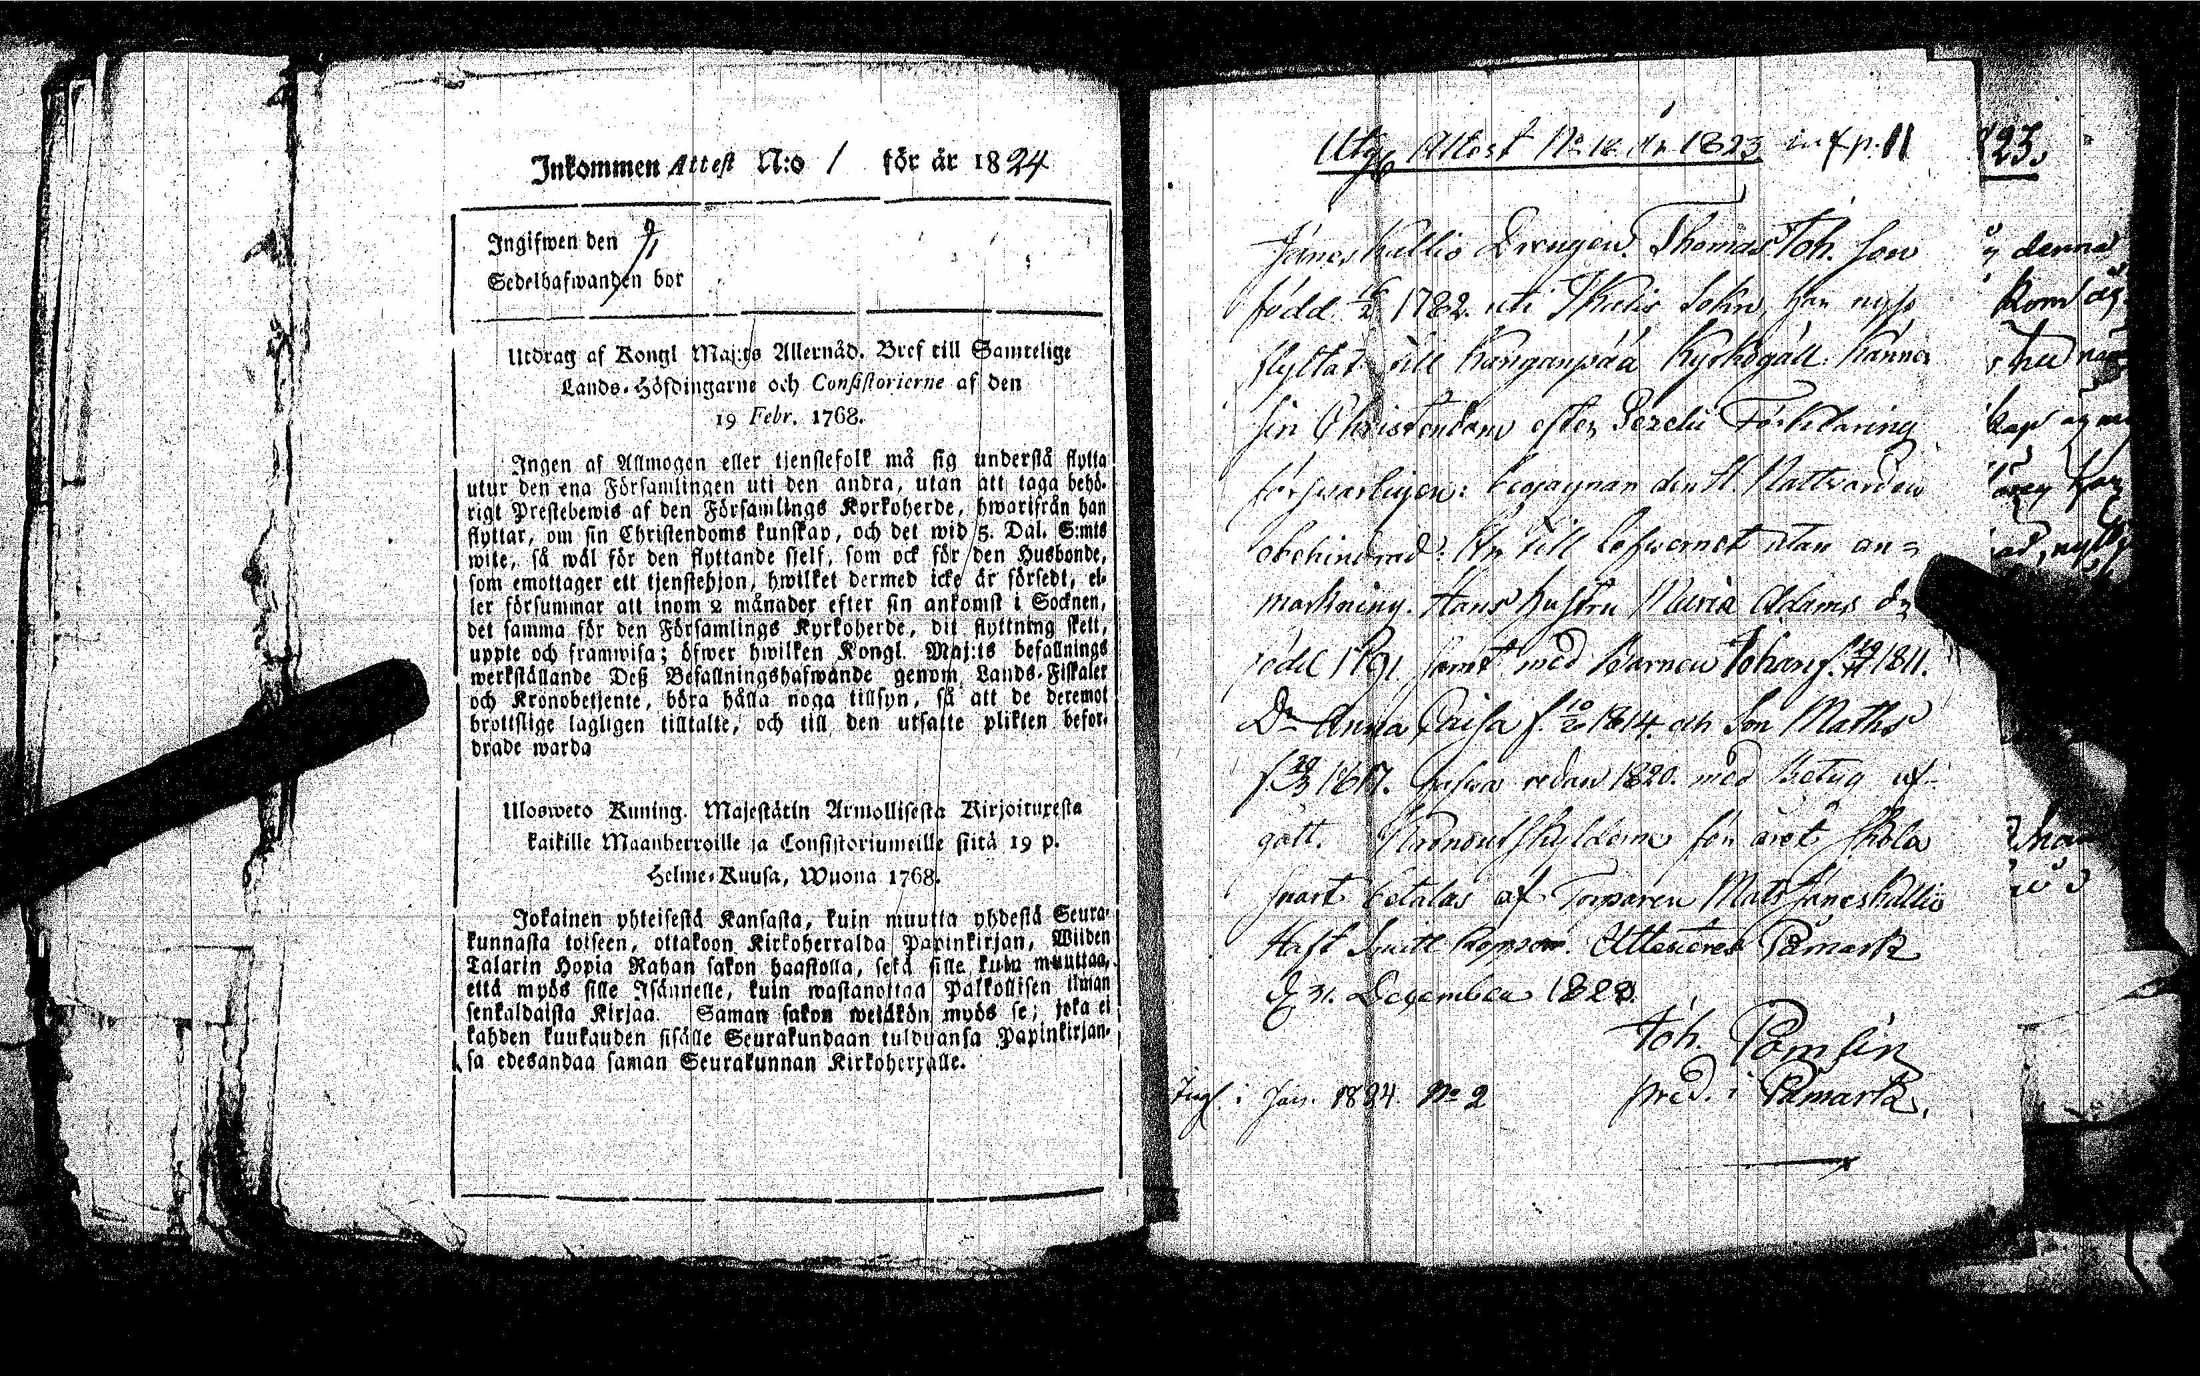 Inkommen Attest N:o 1 för år 1824
Ingifwen den 9/1
Sedelhafwanden bor
Utdrag af Kongl Maj:ts Allernåd. Bref till Samtelige
Lands-Höfdingarne och Consistorierne af den
19 Febr. 1768.
Ingen af Allmogen eller tjenstefolk må sig understå flytta
utur den ena Församlingen uti den andra, utan att taga behö-
rigt Prestebewis af den Församlings Kyrkoherde, hwarifrån han
flyttar, om sin Christendoms kunskap, och det wid 5. Dal. S:mts
wite, så wäl för den flyttande sjelf, som ock för den Husbonde,
som emottager ett tjenstehjon, hwilket dermed icke är försedt, el-
ler försummar att inom 2 månader efter sin ankomst i Socknen,
det samma för den Församlings Kyrkoherde, dit flyttning skett,
uppte och framwisa; öfwer hwilken Kongl. Maj:ts befallnings
werkställande Deß Befallningshafwande genom Lands-Fiskaler
och Kronobetjente, böra hålla noga tillsyn, så att de deremot
brottslige lagligen tilltalte, och till den utsatte plikten befor-
drade warda
Ulosweto Kuning. Majestätin Armollisesta Kirjoituxesta
kaikille Maanherroille ja Consistoriumeille siitä 19 p.
Helme-Kuusa, Wuona 1768.
Jokainen yhteisestä Kansasta, kuin muutta yhdestä Seura-
kunnasta toiseen, ottakoon Kirkoherralda Papinkirjan, Wiiden
Talarin Hopia Rahan sakon haastolla, sekä sille kuin muuttaa,
että myös sille Isännelle, kuin wastanottaa Palkollisen ilman
senkaldaista Kirjaa. Saman sakon wetäkön myös se, joka ei
kahden kuukauden sisälle Seurakundaan tulduansa Papinkirjan-
sa edesandaa saman Seurakunnan Kirkoherralle.
Utg. Attest No 16 år 1823 inf p. 11
Jäneskallio Drengen Thomas Joh. Son
född 1782 uti Sokn, har nyss
flyttat till Kanganpää Kyrkogäll. Känner
sin Christendom efter Förklaring
försvarligen: begagnar den H. Nattvarden
obehindrad. Är till lefwernet utan an=
markning. Hans hustru Maria Adams dr
född 1791 samt med Barnen Johan f. 1811.
Dr Anna Caisa f. 10/2 1814 och Son Maths
f. 1817. hafva redan 1820. med Betyg af-
gått. för året skola
snart betalas af Torparen Mats Jäneskallio
Haft Attesterar Påmark
d. 31. December 1823.
Joh.
pred. i Påmark.
Ingf. i Jan. 1824 No 2
23.
denna
kom